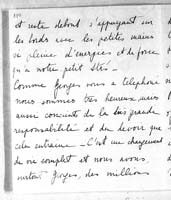 et reste debout s'appuyant sur
les bords avec ses petites mains
si pleine d'énergies et de force
qu'a notre petit
Comme Georges nous a téléphoné
nous sommes très heureux mais
aussi conscients de la très grande
responsabilité et du devoir que
cela entraine - C'est un changement
de vie complet et nous avons,
surtout Georges, des millions